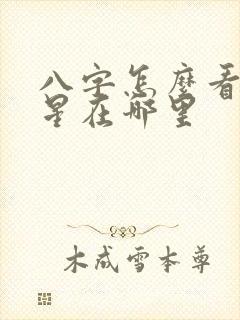 八字怎麼看
星在哪里
木成雪本尊